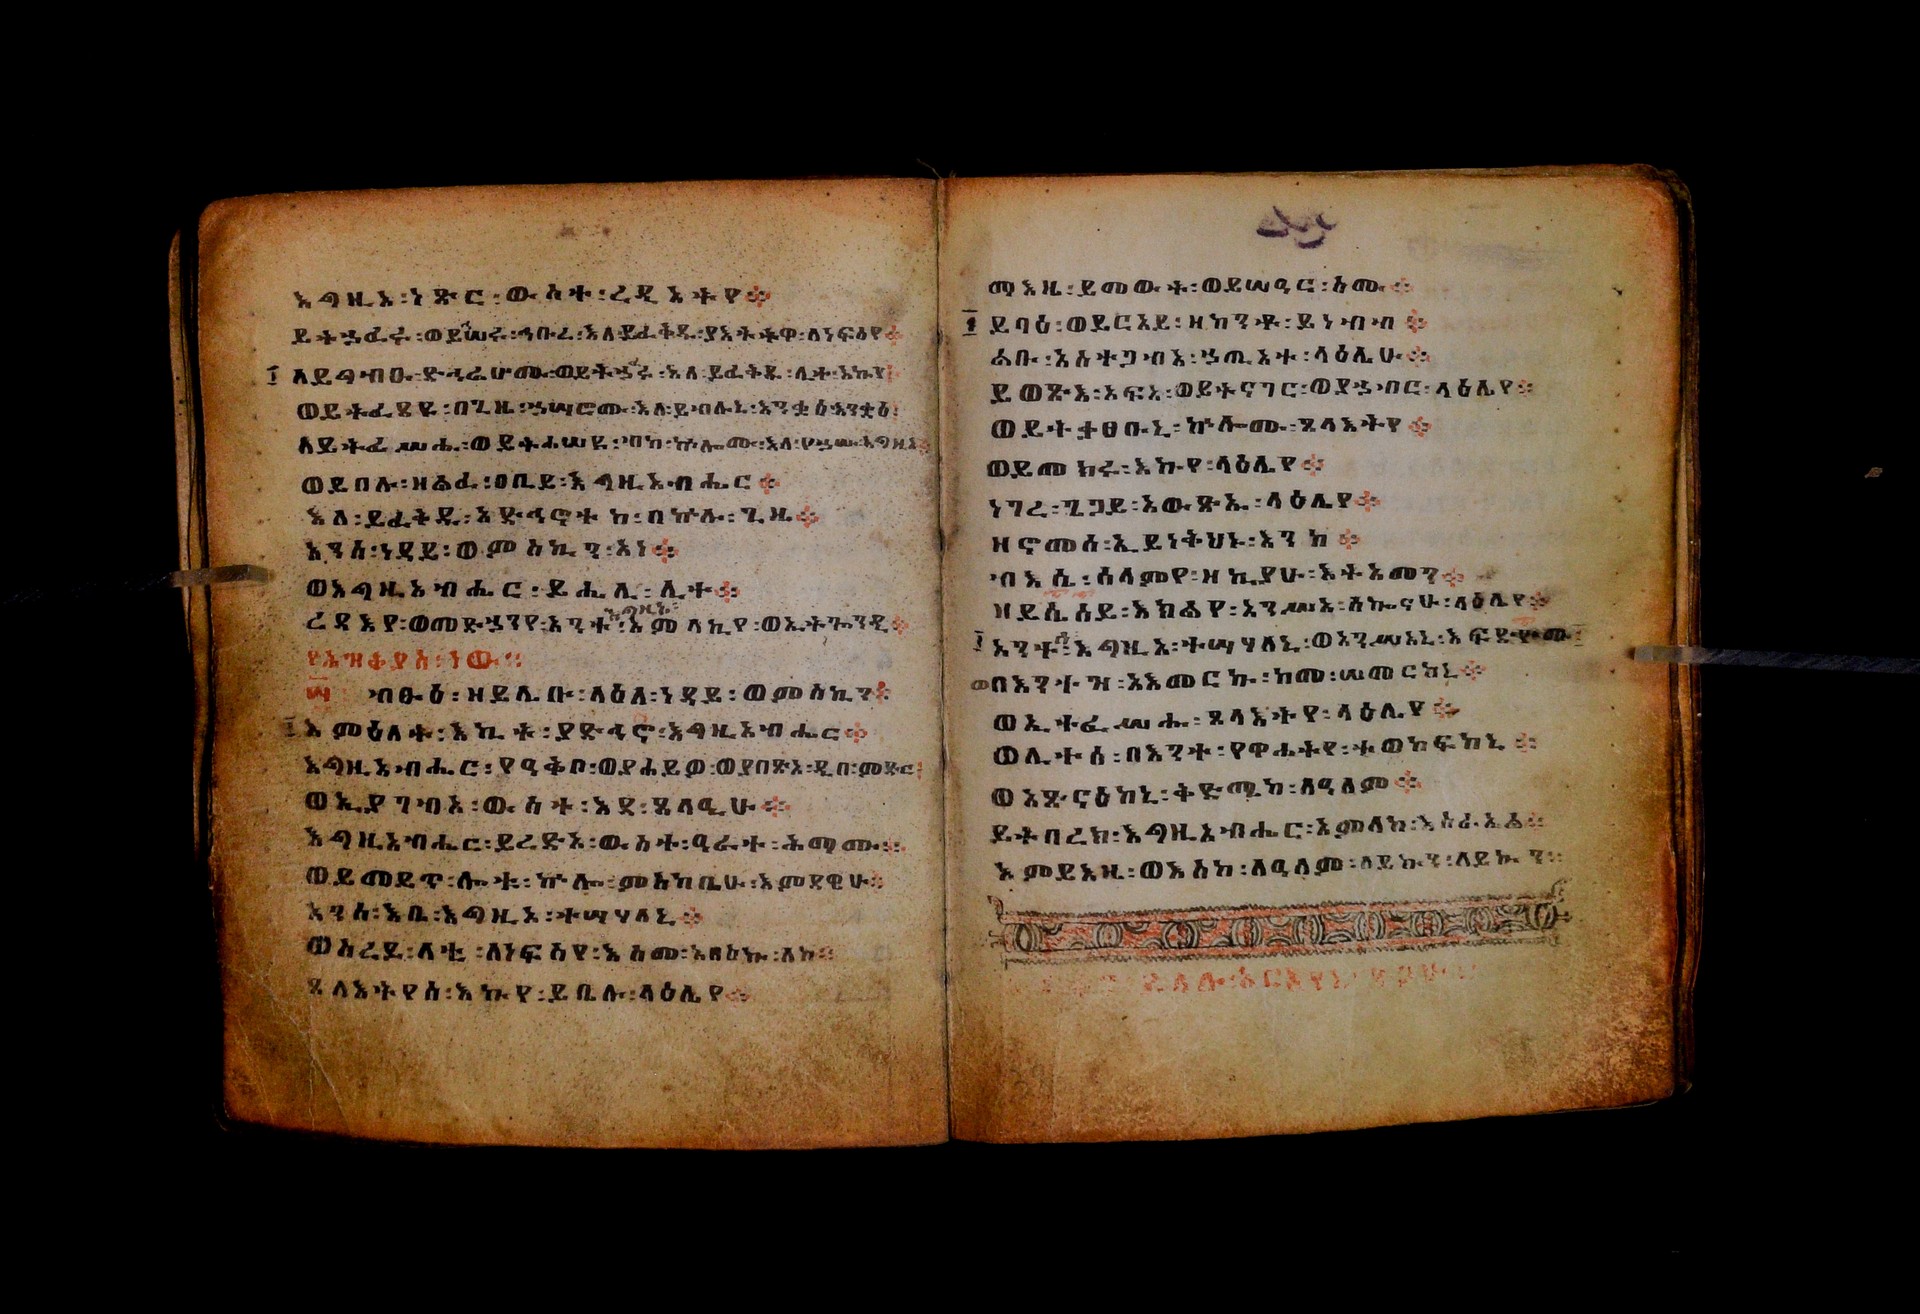 እግዚእ፡ነጽር፡ውስተ፡ረዲኦትየ።
ይትኀፈሩ፡ወይኀሥሩ፡ኅቡረ፡እለ፡ይፈቅዱ፡ያእትትዋ፡ለነፍስየ።
ለይግብኡ፡ድኅሬሆሙ፡ወይትኀፈሩ፡እለ፡ይፈቅዱ፡ሊተ፡እኩየ።
ወይትፈደዩ፡በጊዜ፡ኀሣሮሙ፡እለ፡ይብሉኒ፡እንቋዕ፡እንቋዕ፡
ለይትፈሥሑ፡ወይትሐሠዩ፡ብከ፡ኵሎሙ፡እለ፡የኀሡ፡እግዚኦ
ወይበሉ፡ዘልፈ፡ዐቢይ፡እግዚአብሔር።
እለ፡ይፈቅዱ፡አድኅኖተከ፡በኵሉ፡ጊዜ።
አንሰ፡ነዳይ፡ወምስኪን፡አነ።
ወእግዚአብሔር፡ይሔሊ፡ሊተ።
ረዳእየ፡ወመድኀንየ፡አንተ፡አምላኪየ፡ወኢትጐንዲ።
ብፁዕ፡ዘይሌቡ፡ላዕለ፡ነዳይ፡ወምስኪን።
እምዕለተ፡እኪት፡ያድኅኖ፡እግዚአብሔር።
እግዚአብሔር፡የዓቅቦ፡ወያሐይዎ፡ወያበፅኦ፡ዲበ፡ምድር፡
ወኢያገብኦ፡ውስተ፡እደ፡ጸላዒሁ።
እግዚአብሔር፡ይረድኦ፡ውስተ፡ዓራተ፡ሕማሙ።
ወይመይጥ፡ሎቱ፡ኵሎ፡ምስካቢሁ፡እምደዌሁ።
አንሰ፡እቤ፡እግዚኦ፡ተሣሃለኒ።
ወስረይ፡ላቲ፡ለነፍስየ፡እስመ፡አበስኩ፡ለከ።
ጸላእትየሰ፡እኩየ፡ይቤሉ፡ላዕሌየ።
ማእዜ፡ይመውት፡ወይሠዓር፡ስሙ።
ይባዕ፡ወይርአይ፡ዘከንቶ፡ይነብብ።
ልቡ፡አስተጋብአ፡ኀጢአተ፡ላዕሌሁ።
ይወጽእ፡አፍአ፡ወይትናገር፡ወየኀብር፡ላዕሌየ።
ወይትቃፀቡኒ፡ኵሎሙ፡ጸላእትየ።
ወይመክሩ፡እኩየ፡ላዕሌየ።
ነገረ፡ጌጋይ፡አውጽኡ፡ላዕሌየ።
ዘኖመሰ፡ኢይነቅህኑ፡እንከ።
ብእሲ፡ሰላምየ፡ዘኪያሁ፡እትአመን።
ዘይሴሰይ፡እክልየ፡አንሥአ፡ሰኰናሁ፡ላዕሌየ።
አንተ፡እግዚኦ፡ተሣሃለኒ፡ወአንሥአኒ፡እፍድዮሙ
በእንተዝ፡አእመርኩ፡ከመ፡ሠመርከኒ።
ወኢተፈሥሑ፡ጸላእትየ፡ላዕሌየ።
ወሊተሰ፡በእንተ፡የዋሐትየ፡ተወከፍከኒ።
ወአጽናዕከኒ፡ቅድሜከ፡ለዓለም።
ይትባረክ፡እግዚአብሔር፡አምላከ፡እስራኤል።
እምይእዜ፡ወእስከ፡ለዓለም፡ለይኩን፡ለይኩን።